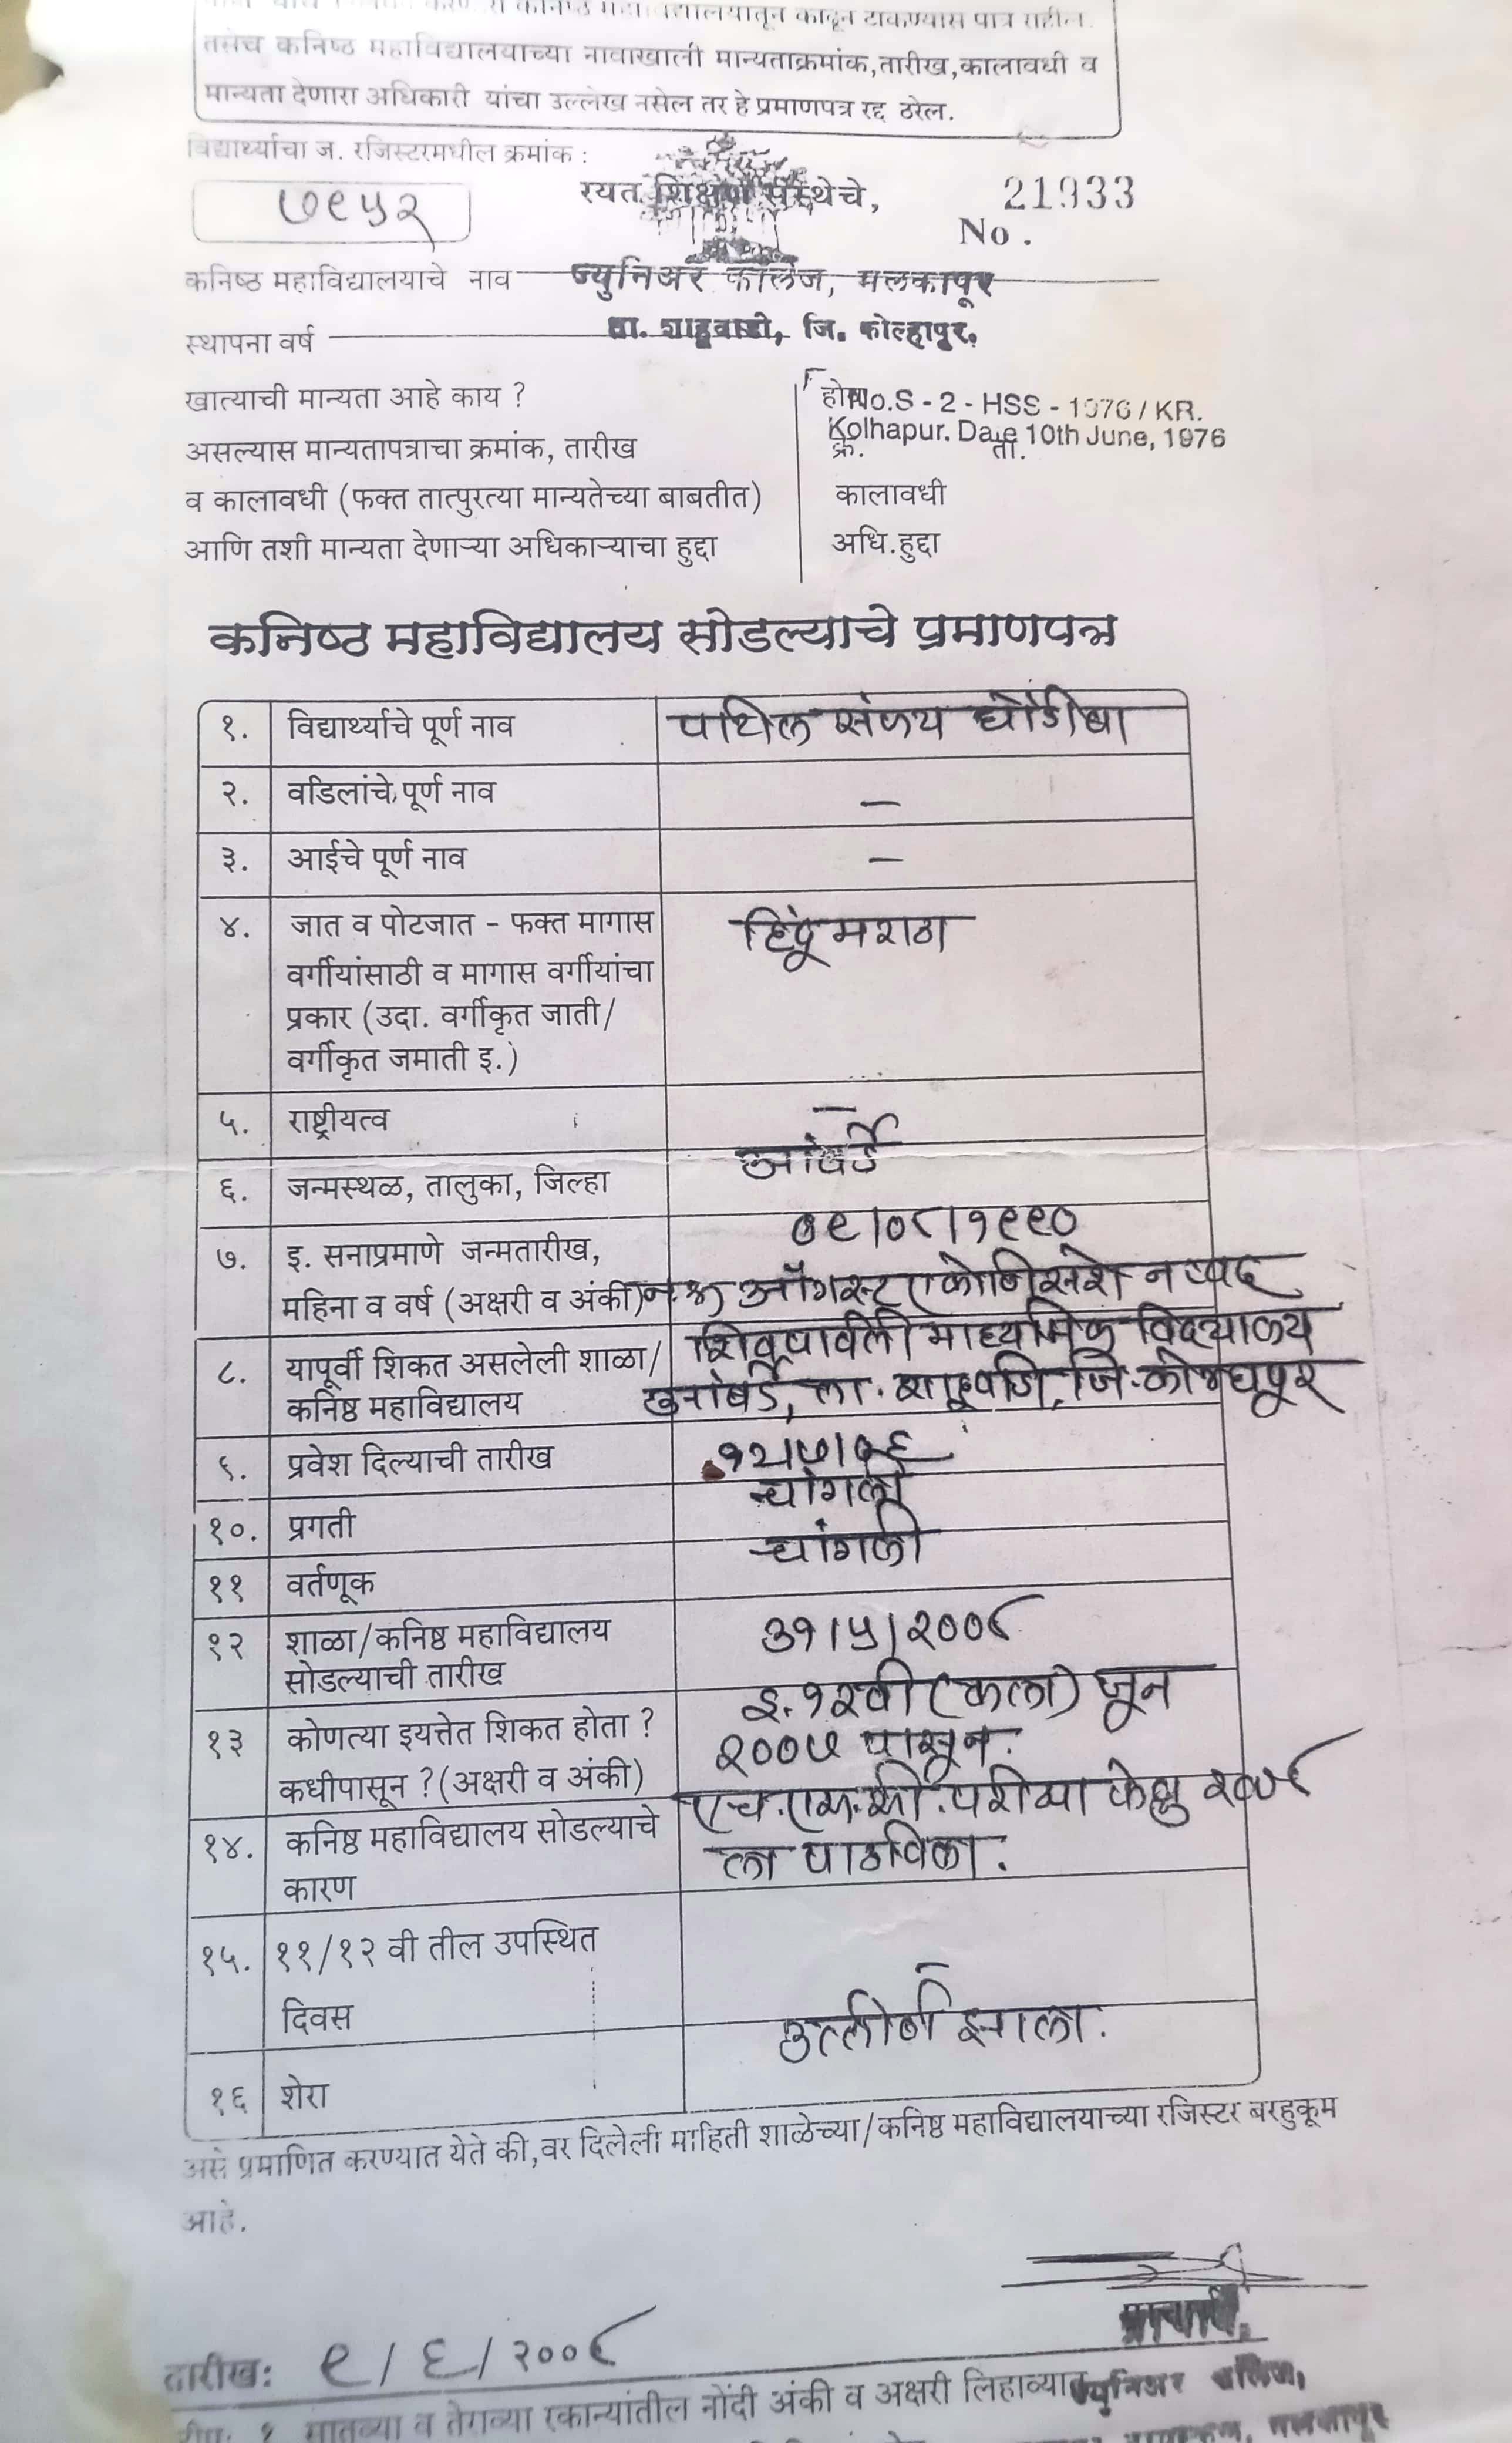 कनिष्ठ महाविद्यालयातून काढून टाकण्यास पात्र राहील.
तसेच कनिष्ठ महाविद्यालयाच्या नावाखाली मान्यताक्रमांक,तारीख,कालावधी व
मान्यता देणारा अधिकारी यांचा उल्लेख नसेल तर हे प्रमाणपत्र रद्द ठरेल.
विद्यार्थ्याचा ज. रजिस्टरमधील क्रमांक :
७९५२
रयत शिक्षण संस्थेचे,
21933
No.
कनिष्ठ महाविद्यालयाचे नाव ज्युनिअर कॉलेज, मलकापूर
स्थापना वर्ष ता. शाहूवाडी, जि. कोल्हापूर.
खात्याची मान्यता आहे काय ? होय No.S - 2 - HSS - 1976 / KR.
Kolhapur. Date 10th June, 1976
असल्यास मान्यतापत्राचा क्रमांक, तारीख क्र. ता.
व कालावधी (फक्त तात्पुरत्या मान्यतेच्या बाबतीत) कालावधी
आणि तशी मान्यता देणाऱ्या अधिकाऱ्याचा हुद्दा अधि.हुद्दा
कनिष्ठ महाविद्यालय सोडल्याचे प्रमाणपत्र
१. विद्यार्थ्याचे पूर्ण नाव पाटील संजय धोंडीबा
२. वडिलांचे पूर्ण नाव —
३. आईचे पूर्ण नाव —
४. जात व पोटजात - फक्त मागास हिंदू मराठा
वर्गीयांसाठी व मागास वर्गीयांचा
प्रकार (उदा. वर्गीकृत जाती/
वर्गीकृत जमाती इ.)
५. राष्ट्रीयत्व —
६. जन्मस्थळ, तालुका, जिल्हा आंबर्डे
७. इ. सनाप्रमाणे जन्मतारीख, ०९/०८/१९९०
महिना व वर्ष (अक्षरी व अंकी) नऊ ऑगस्ट एकोणिसशे नव्वद
८. यापूर्वी शिकत असलेली शाळा/ शिवपार्वती माध्यमिक विद्यालय
कनिष्ठ महाविद्यालय आंबर्डे, ता. शाहूवाडी, जि. कोल्हापूर
९. प्रवेश दिल्याची तारीख १२/७/०६
१०. प्रगती चांगली
११ वर्तणूक चांगली
१२ शाळा/कनिष्ठ महाविद्यालय ३१/५/२००८
सोडल्याची तारीख
१३ कोणत्या इयत्तेत शिकत होता ? इ. १२वी (कला) जून
कधीपासून ?(अक्षरी व अंकी) २००७ पासून.
१४. कनिष्ठ महाविद्यालय सोडल्याचे एच.एस.सी. परीक्षा फेब्रु २००८
कारण ला पाठविला.
१५. ११/१२ वी तील उपस्थित
दिवस —
१६ शेरा उत्तीर्ण झाला.
असे प्रमाणित करण्यात येते की,वर दिलेली माहिती शाळेच्या/कनिष्ठ महाविद्यालयाच्या रजिस्टर बरहुकूम
आहे.
प्राचार्य.
तारीख: ९/६/२००८
टीप: १. सातव्या व तेराव्या रकान्यांतील नोंदी अंकी व अक्षरी लिहाव्यात ज्युनिअर कॉलेज,
मलकापूर